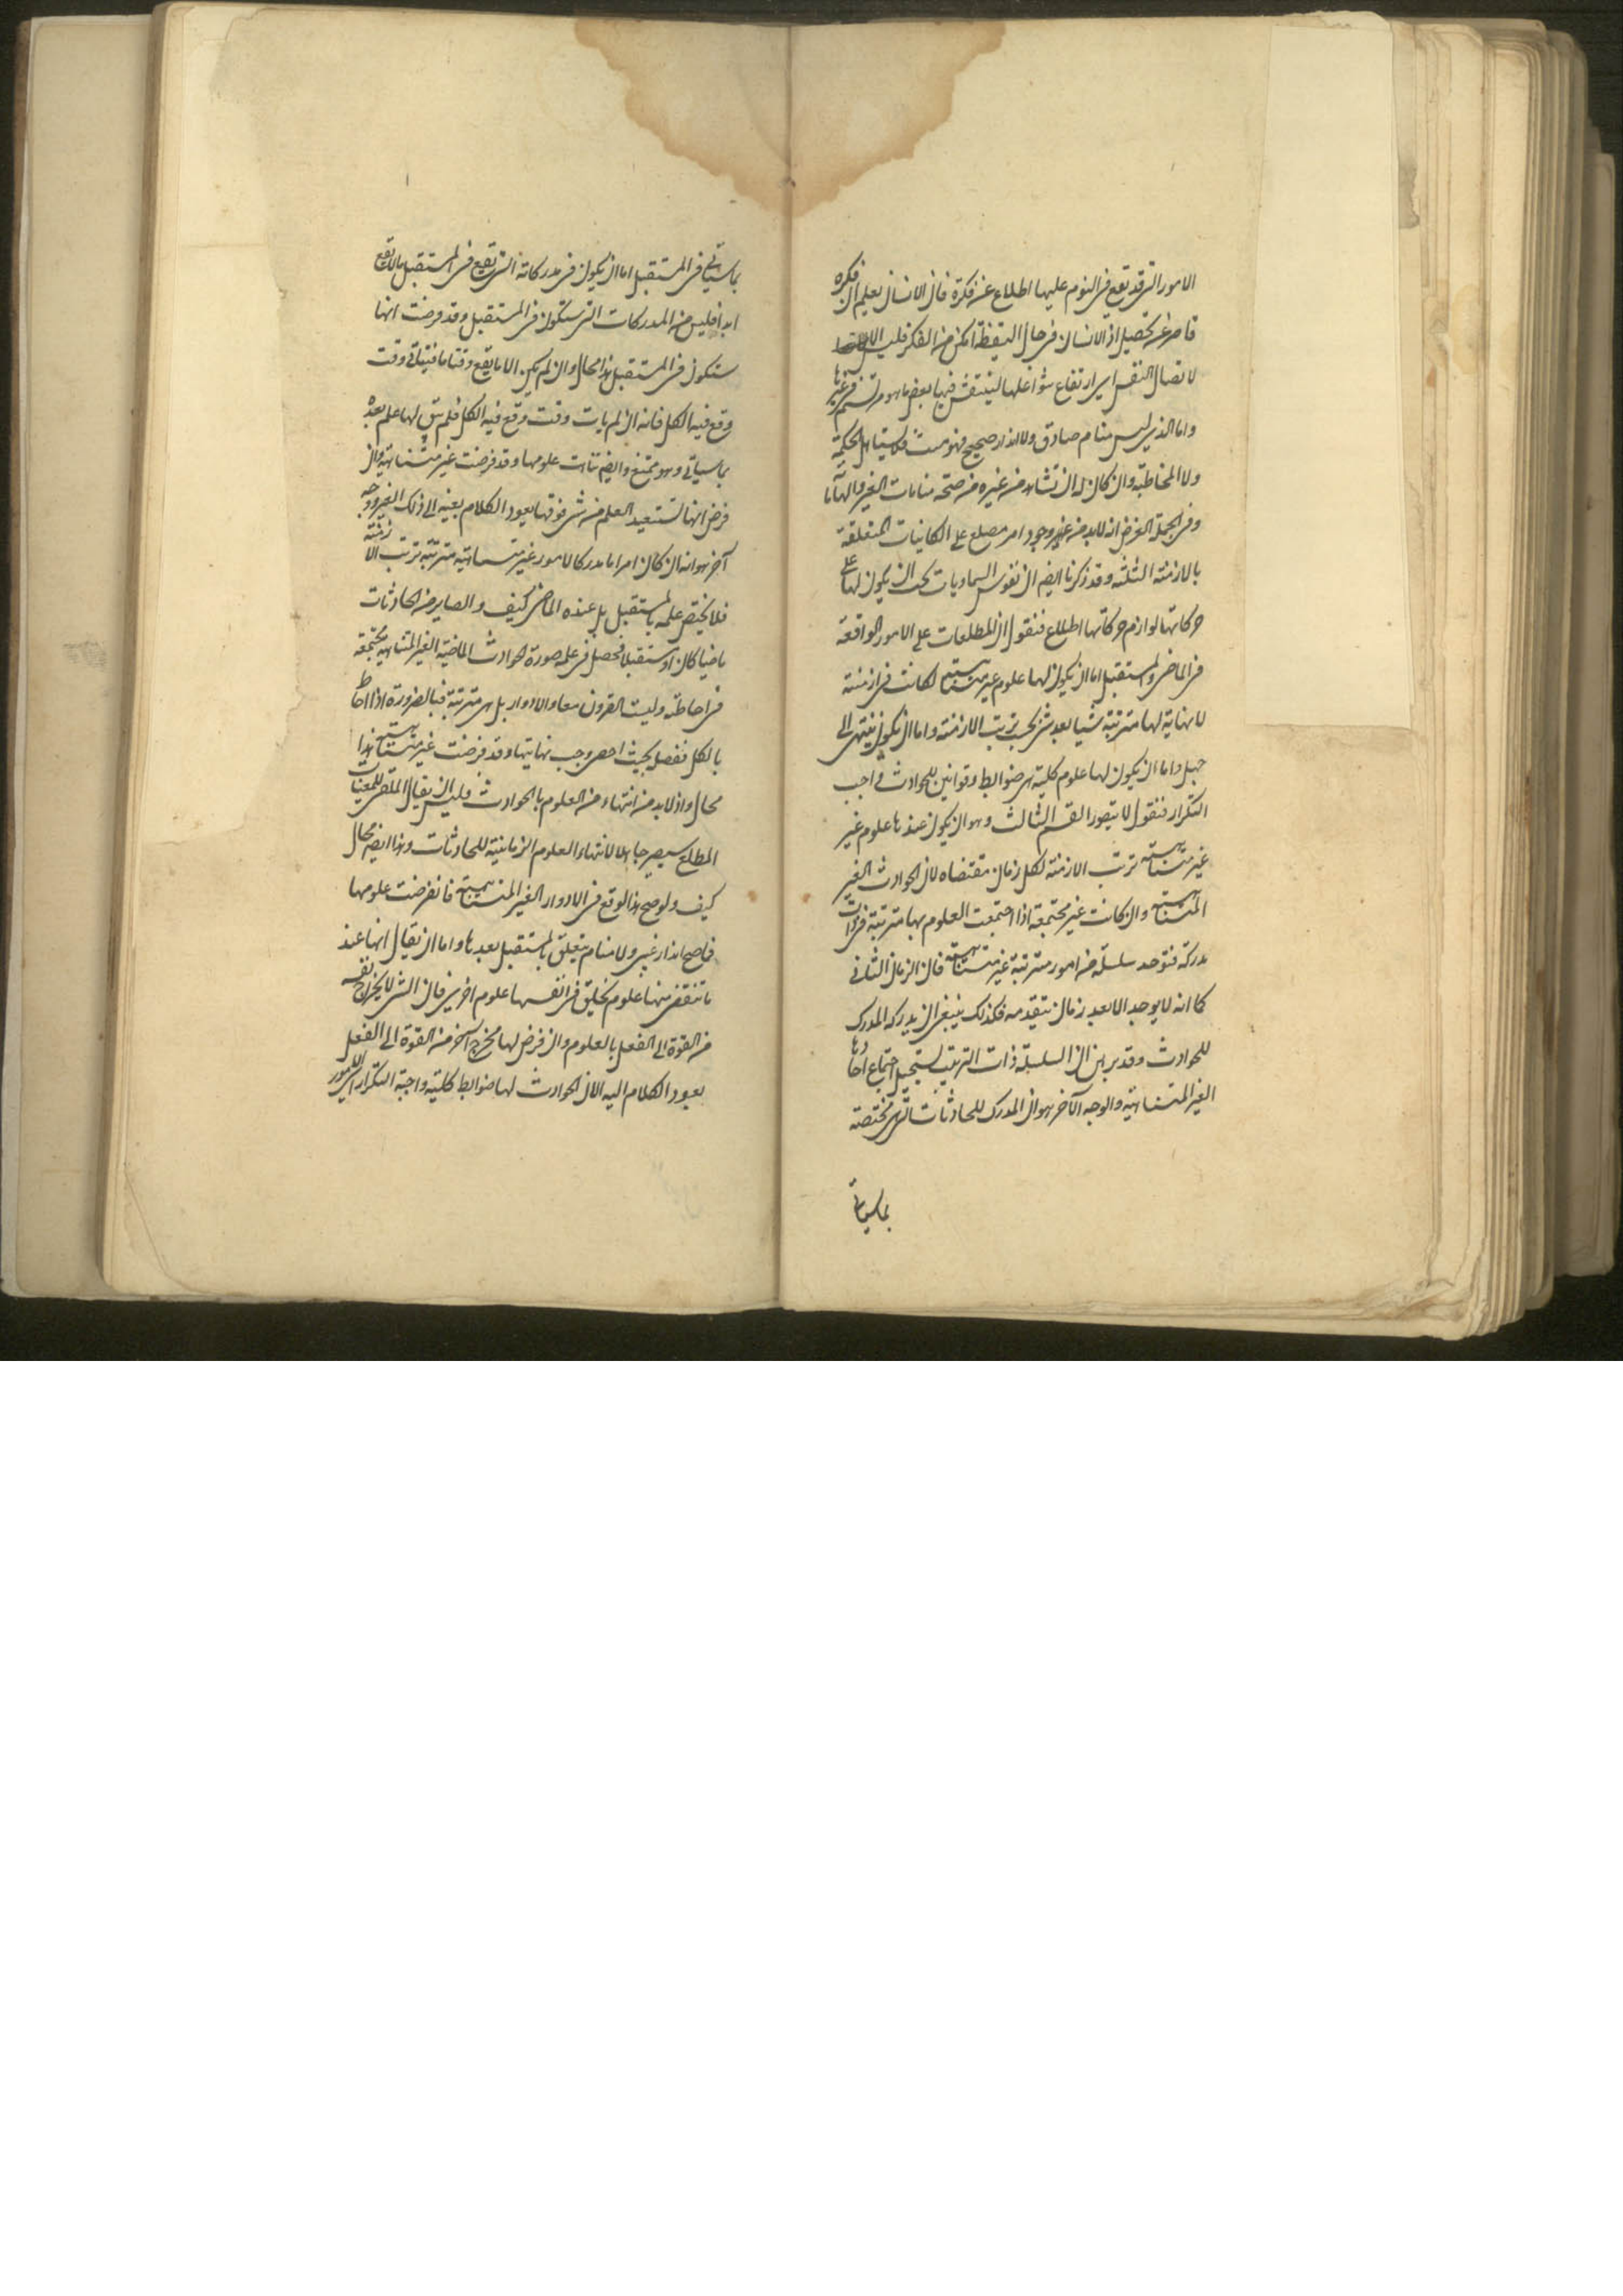 الامور التی قد تقع فی النوم علیها اطلاع عن فکرة فان الانسان یعلم ان فکره
قاصر عن تحصیل اذ الانسان فی حال الیقظة امکن من الفکر فلیس الا
لاتصال النفس ای ارتفاع شواغلها لینتقش فیها بعض ما هو مرتسم فی غیرها
واما الذی لیس منام صادق ولا انذار صحیح فهو میت فلا یستاهل الحکمة
ولا المخاطبة وان کان له ان تشاهد من غیره من صحة منامات الغیر والهاما
وفی الجملة الغرض انه لابد من وجود امر مطلع علی الکائنات المتعلقة
بالازمنة الثلثة وقد ذکرنا ایضا ان نفوس السماویات یجب ان یکون لها علی
حرکاتها لوازم حرکاتها اطلاع فنقول ان المطلعات علی الامور الواقعة
فی الماضی والمستقبل اما ان یکون لها علوم غیر متناهیة لکانت فی ازمنة
لا نهایة لها مترتبة شیئا بعد شئ بحسب ترتب الازمنة واما ان یکون ینتهی الی
جهل واما ان یکون لها علوم کلیة هی ضوابط وقوانین للحوادث واجب
التکرار فنقول لا یتصور القسم الثالث وهو ان یکون عندها علوم غیر
غیر متناهیة ترتب الازمنة لکل زمان مقتضاه لان الحوادث الغیر
المتناهیة وان کانت غیر مجتمعة اذا اجتمعت العلوم بها مترتبة فی ذات
مدرکة فتوجد سلسلة من امور مترتبة غیر متناهیة فان الزمان الثانی
کما انه لا یوجد الا بعد زمان یتقدمه فکذلک ینبغی ان یدرکه المدرک
للحوادث وقد برهن ان السلسلة ذات الترتیب یستحیل اجتماع احادها
الغیر المتناهیة والوجه الآخر هو ان المدرک للحادثات التی مختصة
بما سیاتی
بما سیاتی فی المستقبل اما ان یکون فی مدرکاته التی تقع فی المستقبل ما لا یقع
ابدا فلیس من المدرکات التی ستکون فی المستقبل وقد فرضت انها
ستکون فی المستقبل هذا محال وان لم یکن الا ما یقع وقتا ما فیتاتی وقت
وقع فیه الکل فانه ان لم یات وقت وقع فیه الکل فلم یبق لها علم بعده
بما سیاتی وهو ممتنع وایضا تناهت علومها وقد فرضت غیر متناهیة وان
فرض انها تستعید العلم من شئ فوقها یعود الکلام بعینه الی ذلک الغیر ووجه
آخر هو انه ان کان امر اما مدرکا لامور غیر متناهیة مترتبة ترتب الازمنة
فلا یختص علمه بالمستقبل بل عنده الماضی کیف والصایر من الحادثات
ماضیا کان او مستقبلا فحصل فی علمه صورة الحوادث الماضیة الغیر المتناهیة مجتمعة
فی احاطته ولیست القرون معا والادوار بل هی مترتبة فبالضرورة اذا احاط
بالکل مفصل بحیث احصی وجب نهایتها وقد فرضت غیر متناهیة هذا
محال واذ لابد من انتهاء من العلوم بالحوادث ولیس ان یقال الملقی للمغیبات
المطلع سیصیر جاهلا لانتهاء العلوم الزمانیة للحادثات وهذا ایضا محال
کیف ولو صح هذا لوقع فی الادوار الغیر المتناهیة فانقرضت علومها
فما صح انذار غیبی ولا منام یتعلق بالمستقبل بعدها واما ان یقال انها عند
ما تنقضی منها علوم تخلیق فی انفسها علوم اخری فان الشئ لا یخرج نفسه
من القوة الی الفعل بالعلوم وان فرض لها مخرج آخر من القوة الی الفعل
یعود الکلام الیه الا ان الحوادث لها ضوابط کلیة واجبة التکرار